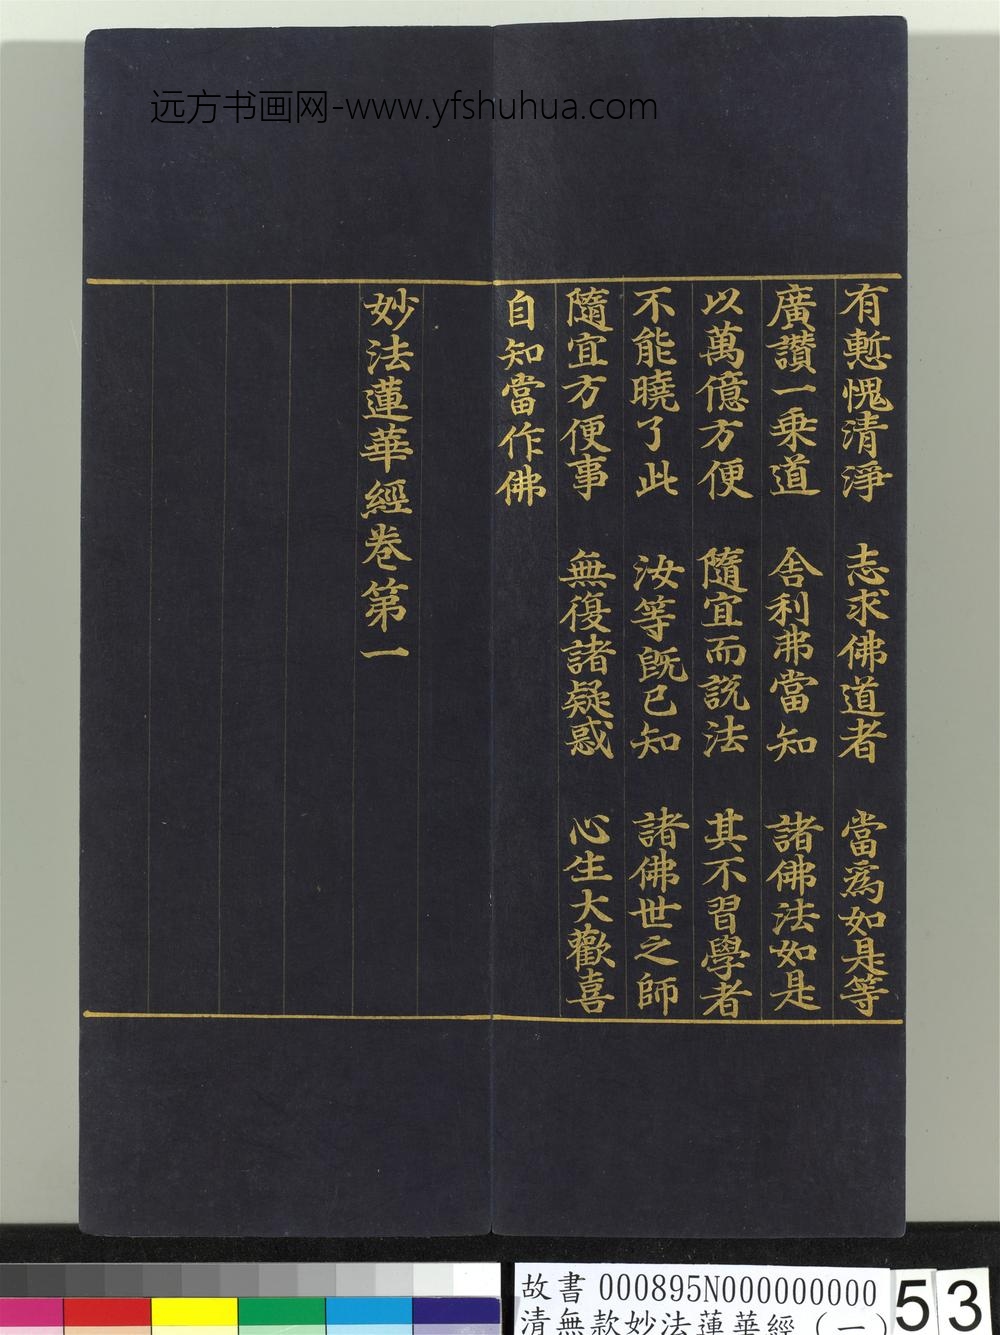 远方书画网-www.yfshuhua.com
有慙愧清淨 志求佛道者 當爲如是等
廣讚一乗道 舍利弗當知 諸佛法如是
以萬億方便 隨宜而説法 其不習學者
不能曉了此 汝等旣已知 諸佛世之師
隨宜方便事 無復諸疑惑 心生大歡喜
自知當作佛
妙法蓮華經卷第一
故書 000895N000000000
清無款妙法蓮華經(一)
53